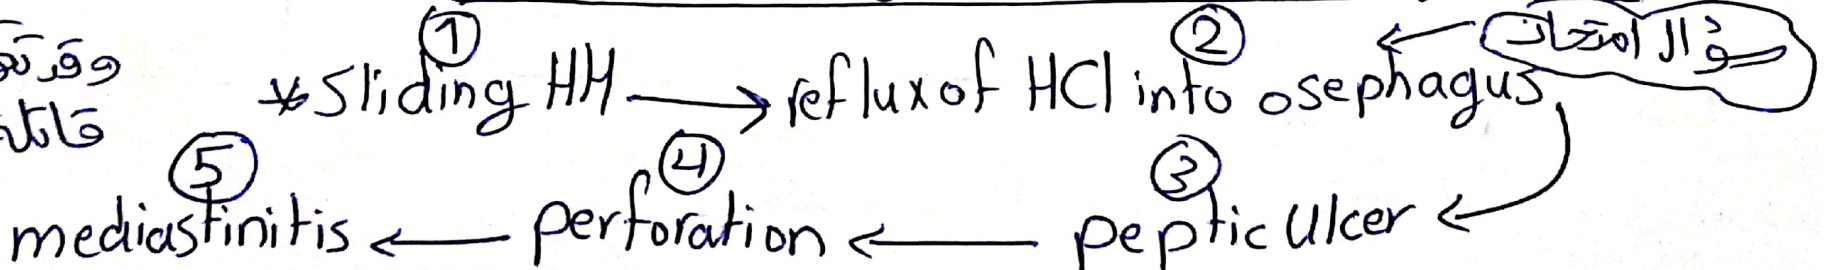 ① ②
* Sliding HH → reflux of HCl into osephagus ← سؤال امتحان
⑤ ④ ③
mediastinitis ← perforation ← peptic Ulcer ←